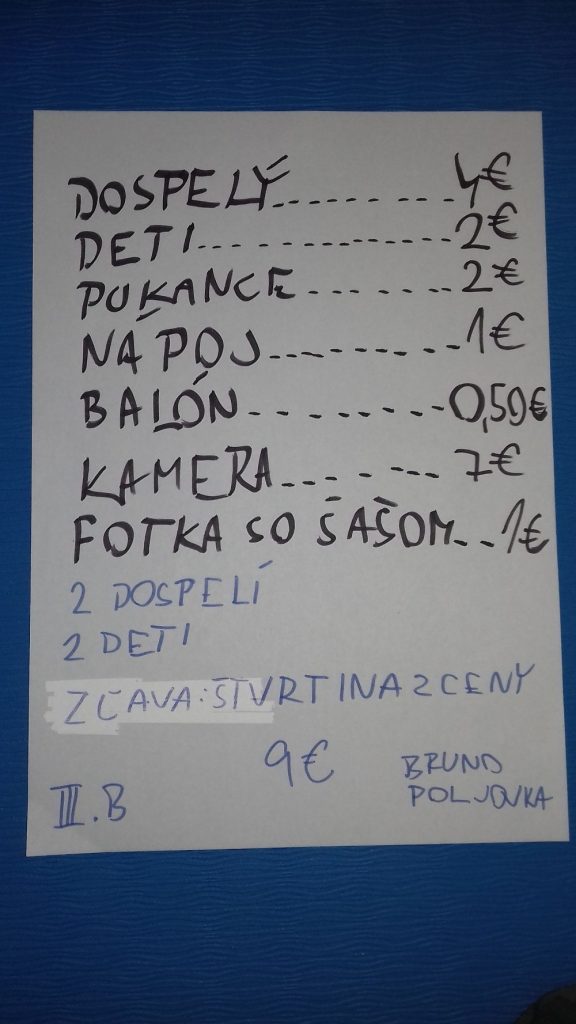 DOSPELÝ......... 4€
DETI.................2€
PUKANCE.........2€
NÁPOJ..........1€
BALÓN.........0,50€
KAMERA........ 7€
FOTKA SO ŠAŠOM...1€
2 DOSPELÍ
2 DETI
ZĽAVA: ŠTVRTINA Z CENY
9€
BRUNO
POLJOVKA
III.B